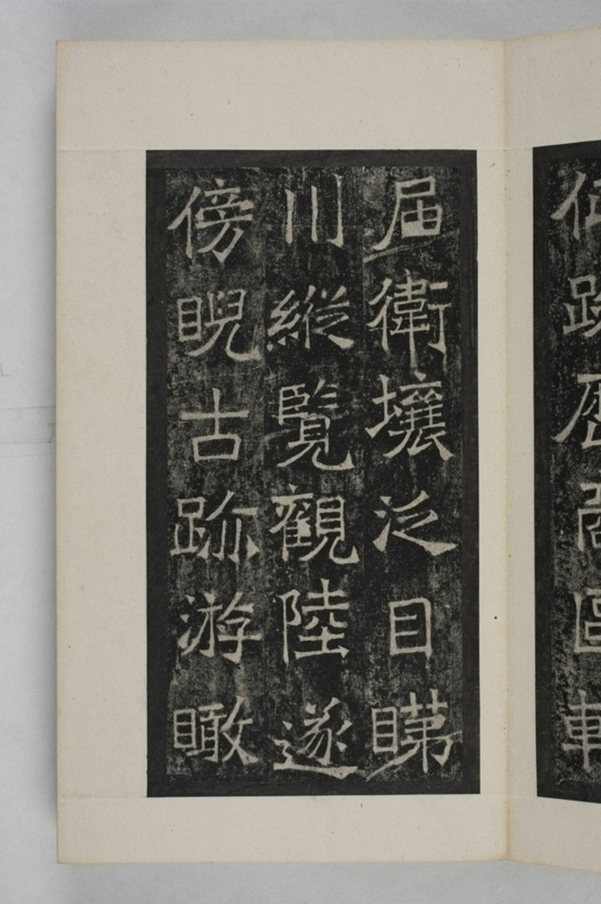 届衛壤泛目睇
川縱覽觀陸遂
傍睨古跡游瞰